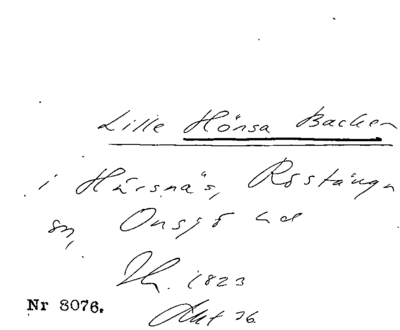 Lille Hönsa Backen
i Härsnäs, Röstånga
sn, Onsjö hd
Th. 1823
Akt 26
Nr 8076.